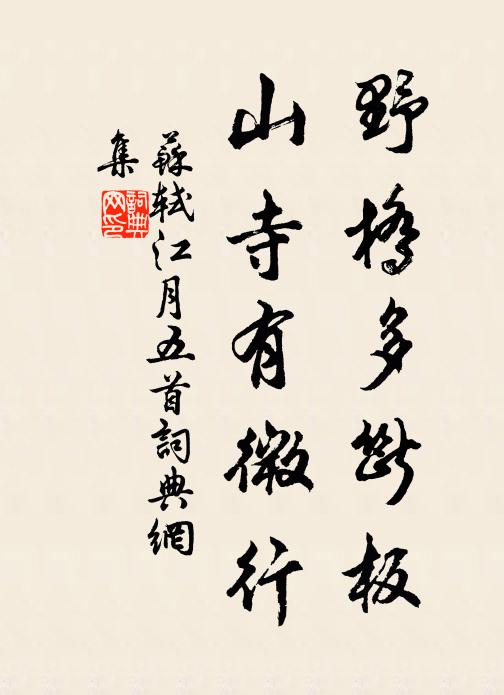 野橋多斷板
山寺有微行
蘇軾江月五首詞典網
集
詞典網印